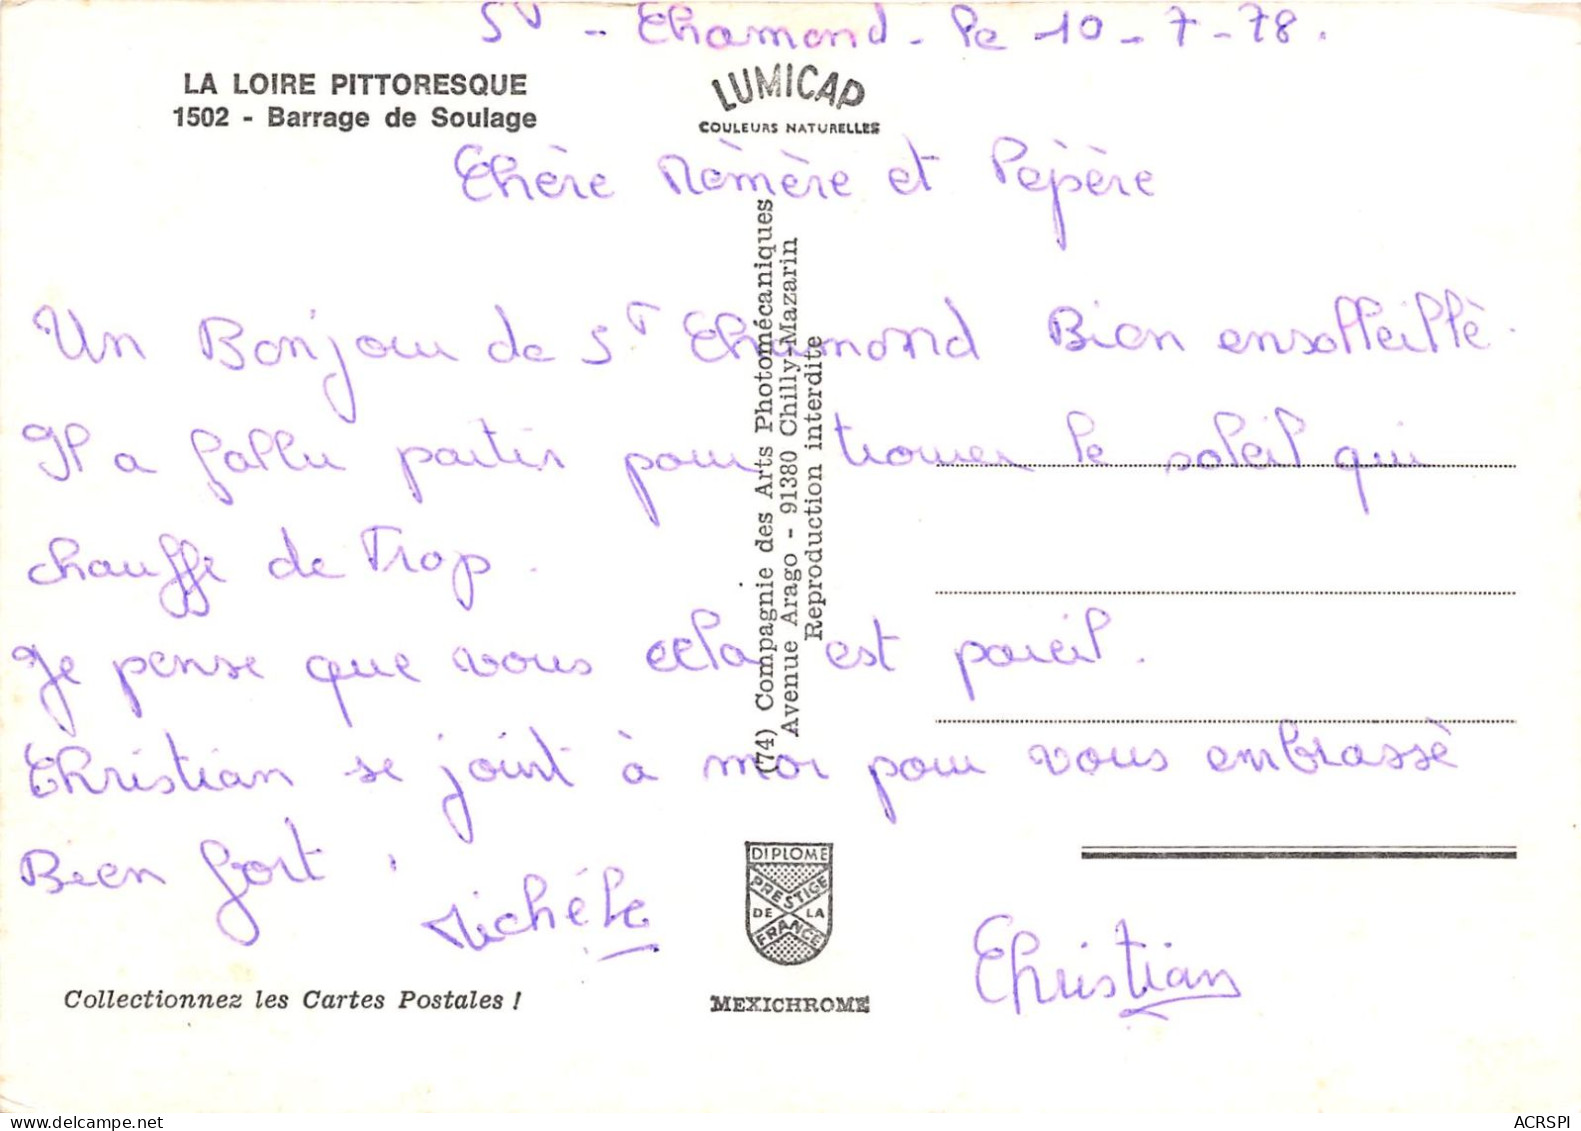 St - Chamond - le 10 - 7 - 78 .
LA LOIRE PITTORESQUE
1502 - Barrage de Soulage
LUMICAP
COULEURS NATURELLES
Chère Mèmère et Pépère
Un Bonjour de St Chamond Bien ensolleillè.
Il a fallu partir pour trouver le soleil qui
chauffe de Trop .
Je pense que vous cela est pareil.
Christian se joint à moi pour vous embrassè
Bien fort .
Michéle
Christian
(74) Compagnie des Arts Photomécaniques
Avenue Arago - 91380 Chilly-Mazarin
Reproduction interdite
DIPLOME
PRESTIGE
DE LA
FRANCE
Collectionnez les Cartes Postales !
MEXICHROME
www.delcampe.net
ACRSPI